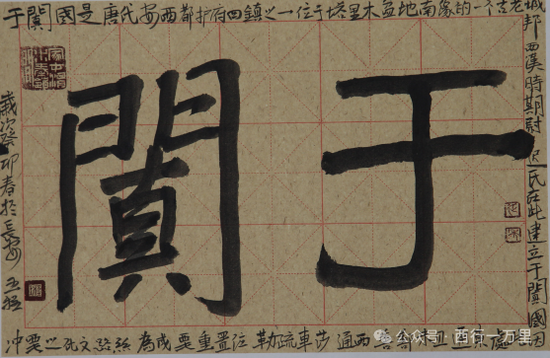 于闐
于闐國是唐代安西都护府四鎮之一位于塔里木盆地南緣的一个古老
城邦西漢時期尉迟氏在此建立于闐國因
西通莎車疏勒位置重要成為絲
文化之要冲
歲次癸卯春於長安
公众号·西行一万里